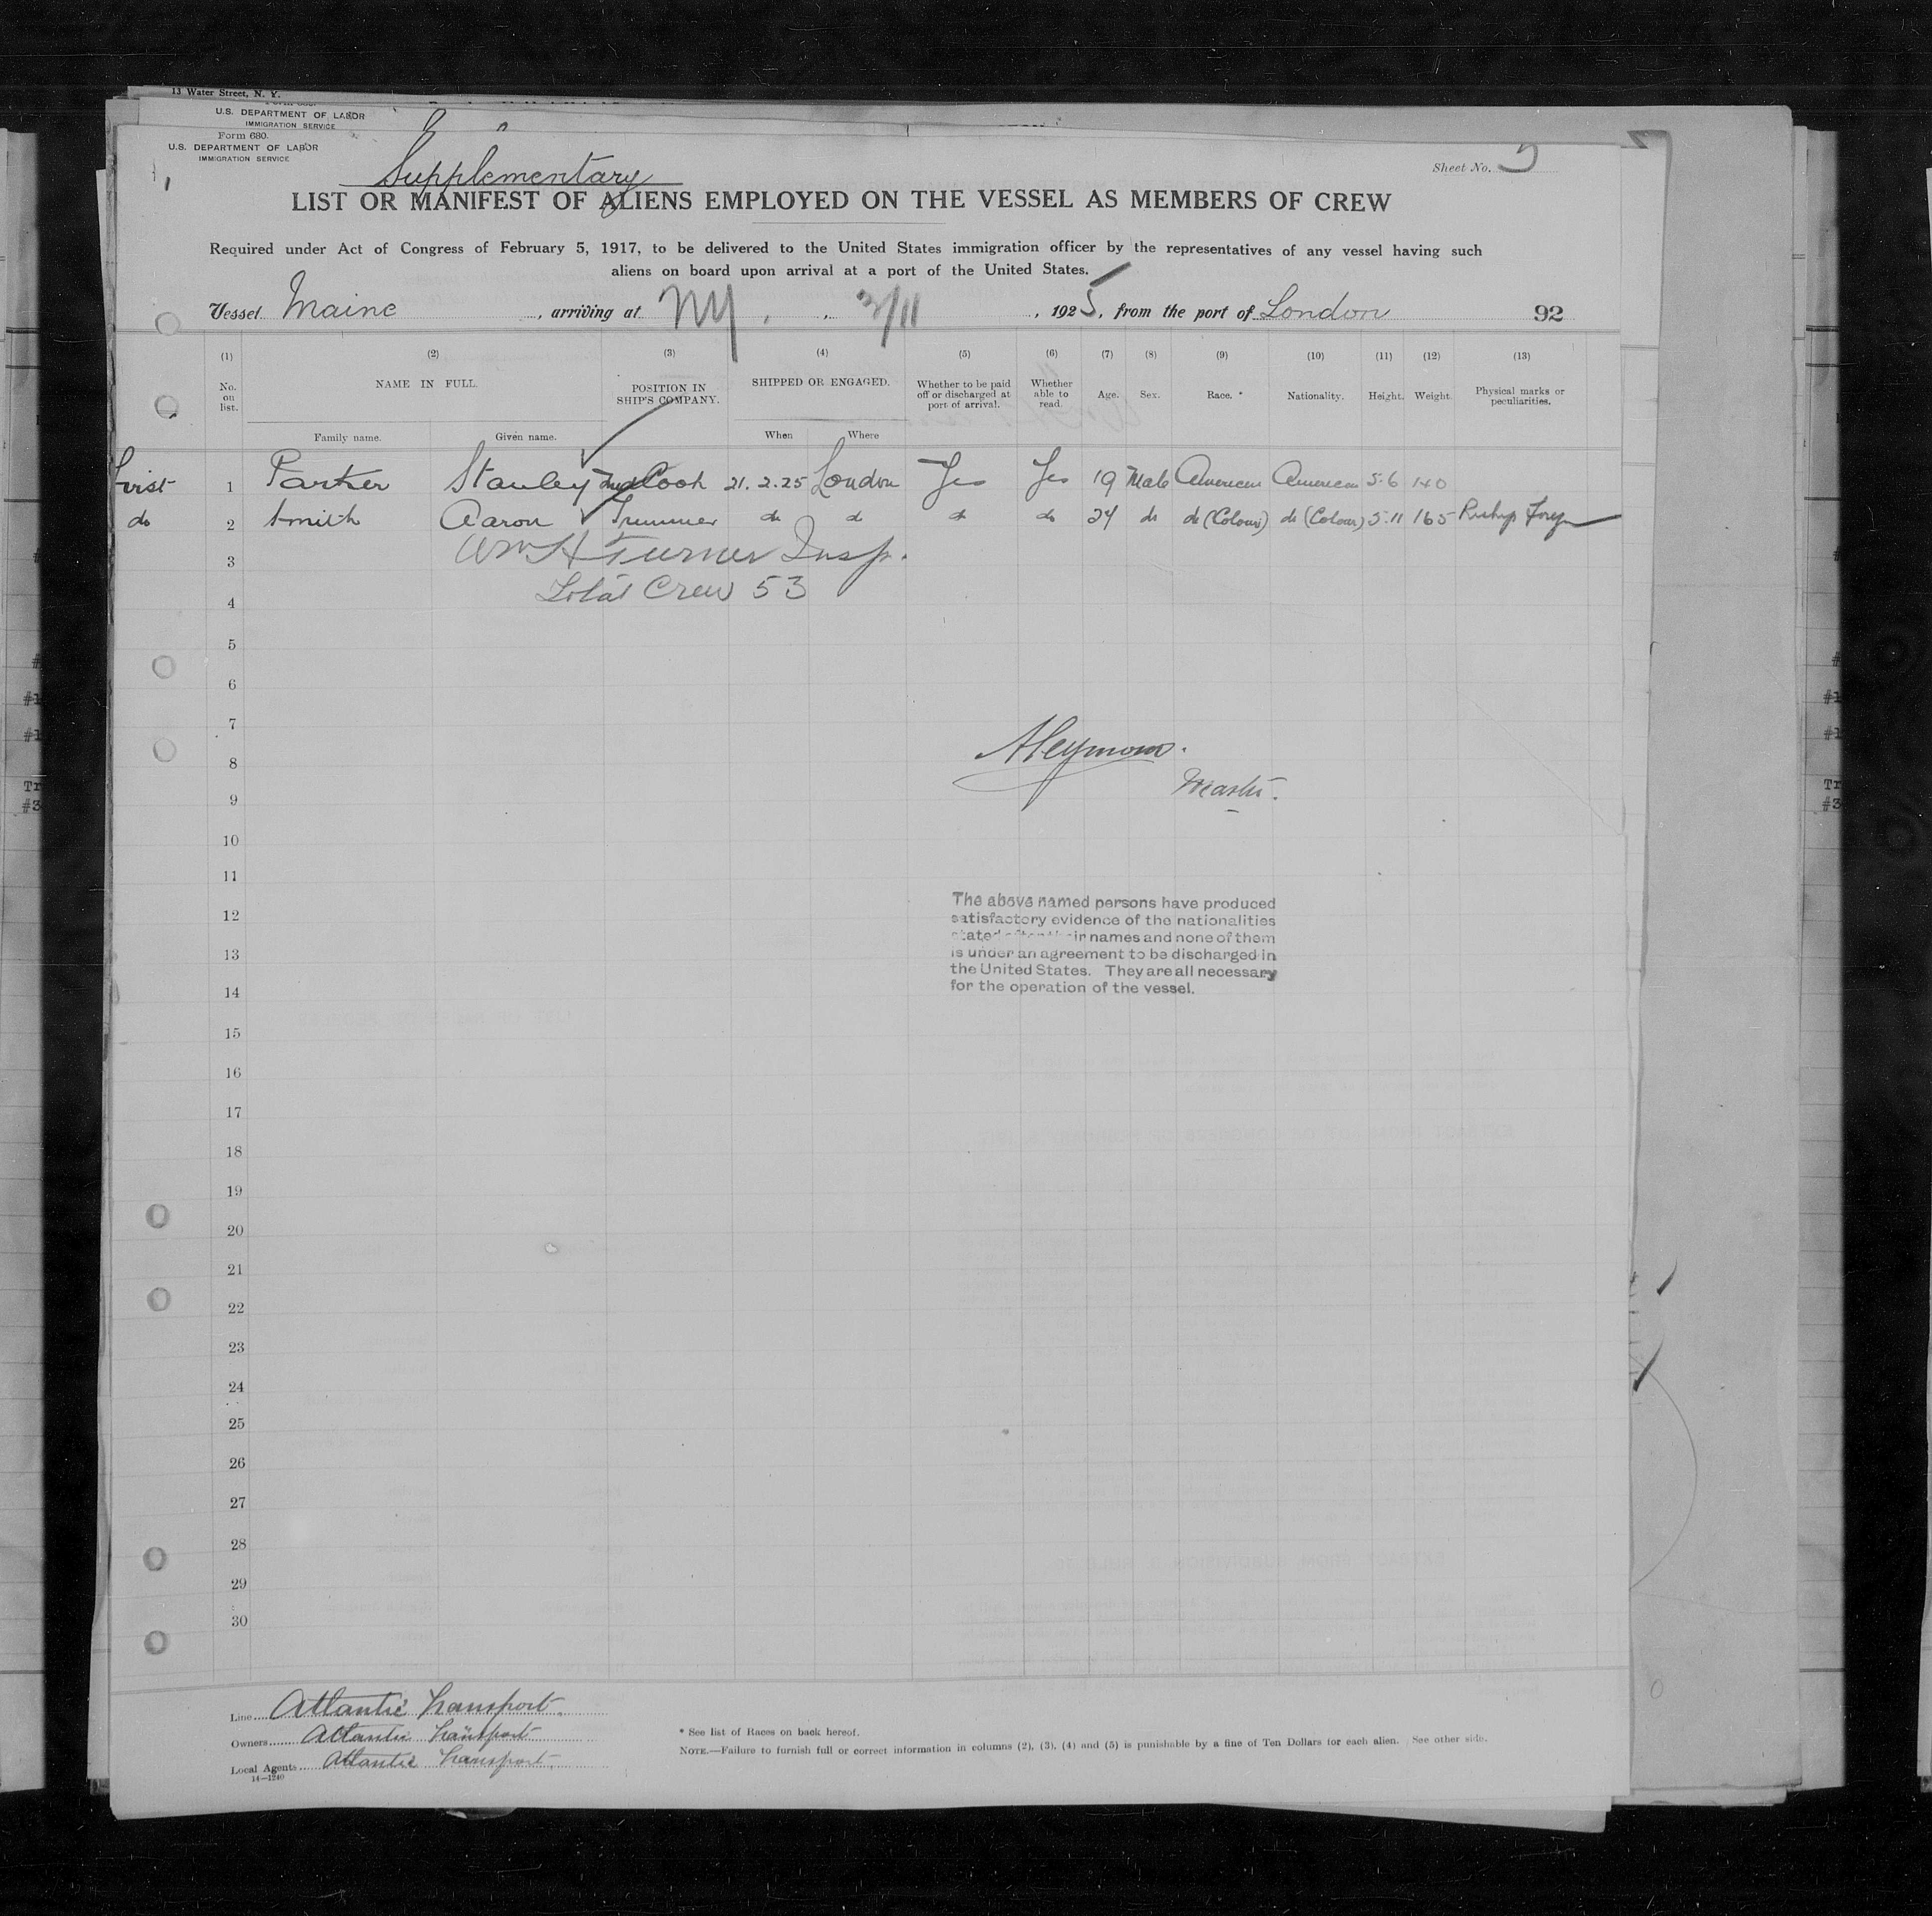 13 Water Street, N. Y.
U.S. DEPARTMENT OF LABOR
IMMIGRATION SERVICE
Form 680.
U.S. DEPARTMENT OF LABOR
IMMIGRATION SERVICE
Sheet No. 5
Supplementary
LIST OR MANIFEST OF ALIENS EMPLOYED ON THE VESSEL AS MEMBERS OF CREW
Required under Act of Congress of February 5, 1917, to be delivered to the United States immigration officer by the representatives of any vessel having such
aliens on board upon arrival at a port of the United States.
Vessel Maine, arriving at NY, 3/11, 1925, from the port of London 92
(1) (2) (3) (4) (5) (6) (7) (8) (9) (10) (11) (12) (13)
No. on list. NAME IN FULL. POSITION IN SHIP'S COMPANY. SHIPPED OR ENGAGED. Whether to be paid off or discharged at port of arrival. Whether able to read. Age. Sex. Race. * Nationality. Height. Weight. Physical marks or peculiarities.
Family name. Given name. When Where
First 1 Parker Stanley 2nd Cook 21.2.25 London Yes Yes 19 Male American American 5.6 140
do 2 Smith Aaron Trimmer do do do do 24 do do (Colour) do (Colour) 5.11 165
3 Wm H Turner Insp.
4 Total Crew 53
5
6
7
8
Master.
9
10
11
The above named persons have produced
12 satisfactory evidence of the nationalities
stated after their names and none of them
13 is under an agreement to be discharged in
the United States. They are all necessary
14 for the operation of the vessel.
15
16
17
18
19
20
21
22
23
24
25
26
27
28
29
30
Line Atlantic Transport.
Owners Atlantic Transport
Local Agents Atlantic Transport.
14—1240
* See list of Races on back hereof.
NOTE.—Failure to furnish full or correct information in columns (2), (3), (4) and (5) is punishable by a fine of Ten Dollars for each alien. See other side.